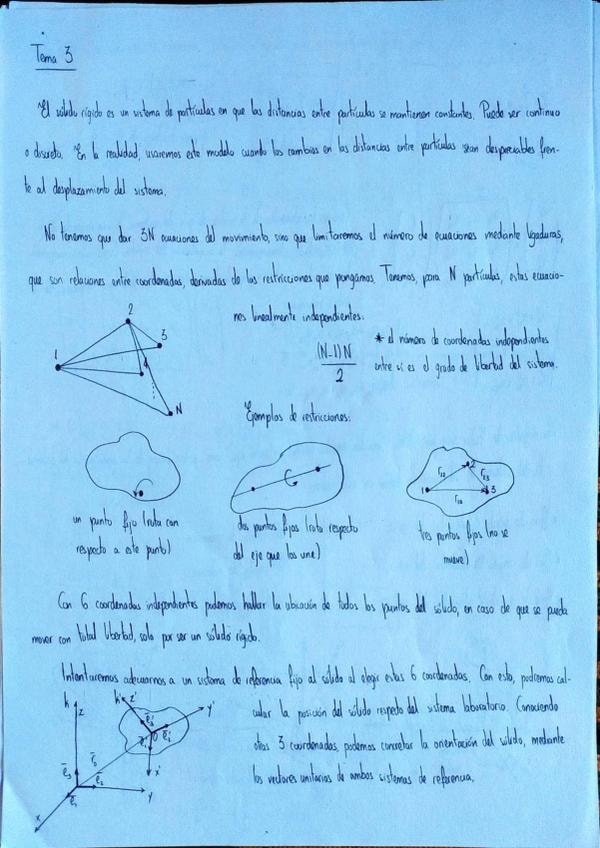 Tema 3
El sólido rígido es un sistema de partículas en que las distancias entre partículas se mantienen constantes. Puede ser continuo
o discreto. En la realidad, usaremos este modelo cuando los cambios en las distancias entre partículas sean despreciables fren-
te al desplazamiento del sistema.
No tenemos que dar 3N ecuaciones del movimiento, sino que limitaremos el número de ecuaciones mediante ligaduras,
que son relaciones entre coordenadas, derivadas de las restricciones que pongamos. Tenemos, para N partículas, estas ecuacio-
nes linealmente independientes:
1 2 3 4 N
(N-1)N
2
* el número de coordenadas independientes
entre sí es el grado de libertad del sistema.
Ejemplos de restricciones:
un punto fijo (rota con
respecto a este punto)
dos puntos fijos (rota respecto
del eje que los une)
1 2 3 r12 r23 r13
tres puntos fijos (no se
mueve)
Con 6 coordenadas independientes podemos hallar la ubicación de todos los puntos del sólido, en caso de que se pueda
mover con total libertad, solo por ser un sólido rígido.
Intentaremos adecuarnos a un sistema de referencia fijo al sólido al elegir estas 6 coordenadas. Con esto, podremos cal-
cular la posición del sólido respecto del sistema laboratorio. Conociendo
otras 3 coordenadas, podemos concretar la orientación del sólido, mediante
los vectores unitarios de ambos sistemas de referencia.
k z k' z' y' x' O
ē3' ē1' ē2'
r̄0
ē3 ē2 ē1
x y